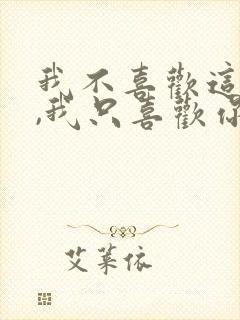 我不喜歡這
,我只喜歡你
艾萊依